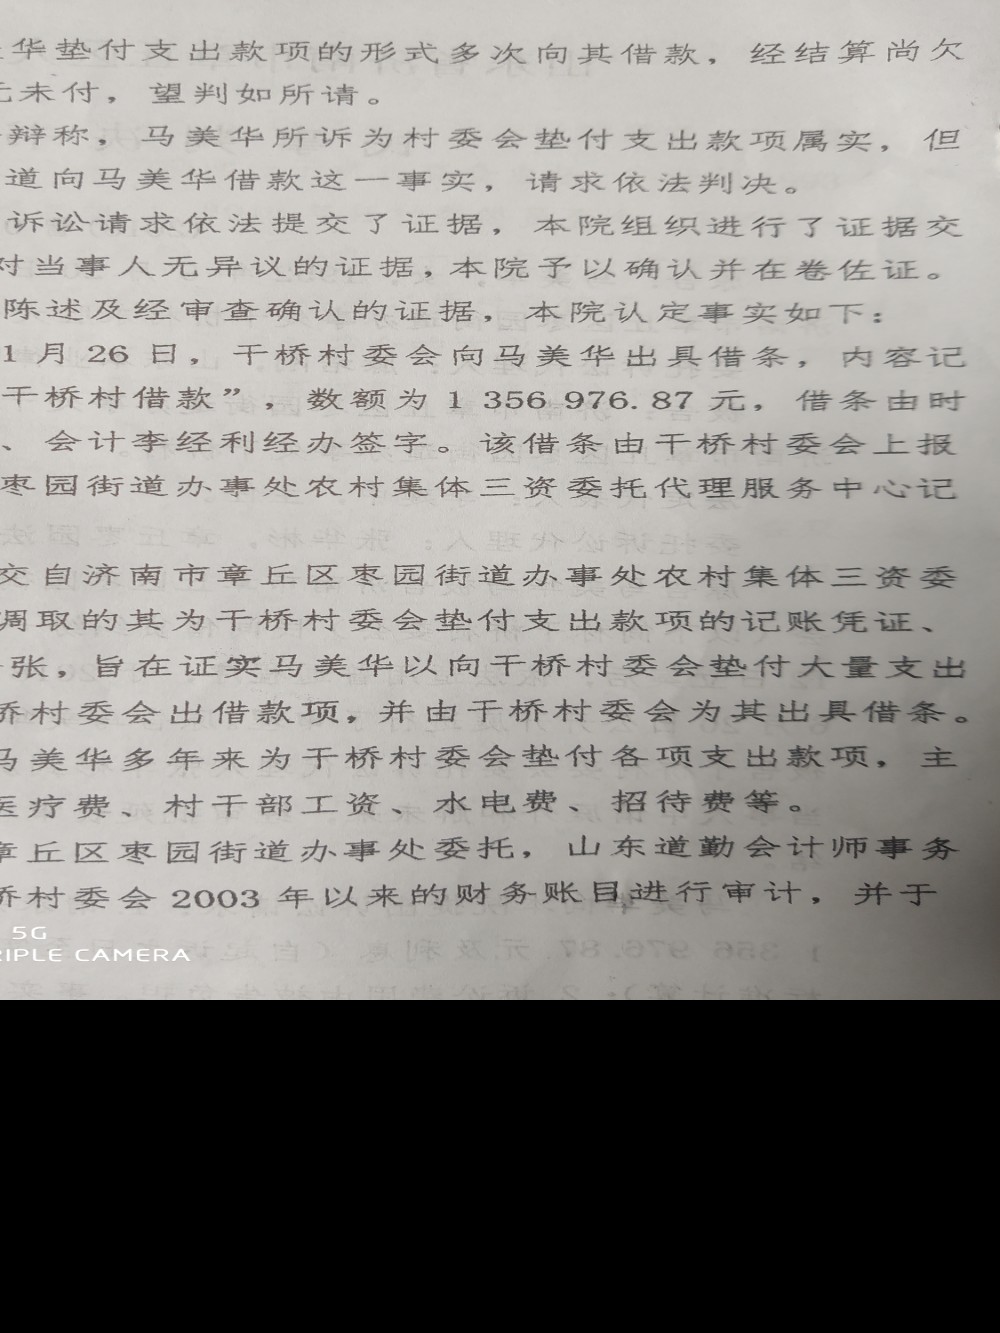 华垫付支出款项的形式多次向其借款，经结算尚欠
元未付，望判如所请。
辩称，马美华所诉为村委会垫付支出款项属实，但
道向马美华借款这一事实，请求依法判决。
诉讼请求依法提交了证据，本院组织进行了证据交
对当事人无异议的证据，本院予以确认并在卷佐证。
陈述及经审查确认的证据，本院认定事实如下：
1月26日，干桥村委会向马美华出具借条，内容记
干桥村借款”，数额为1 356 976.87元，借条由时
、会计李经利经办签字。该借条由干桥村委会上报
枣园街道办事处农村集体三资委托代理服务中心记
交自济南市章丘区枣园街道办事处农村集体三资委
调取的其为干桥村委会垫付支出款项的记账凭证、
张，旨在证实马美华以向干桥村委会垫付大量支出
桥村委会出借款项，并由干桥村委会为其出具借条。
马美华多年来为干桥村委会垫付各项支出款项，主
医疗费、村干部工资、水电费、招待费等。
章丘区枣园街道办事处委托，山东道勤会计师事务
桥村委会2003年以来的财务账目进行审计，并于
5G
RIPLE CAMERA